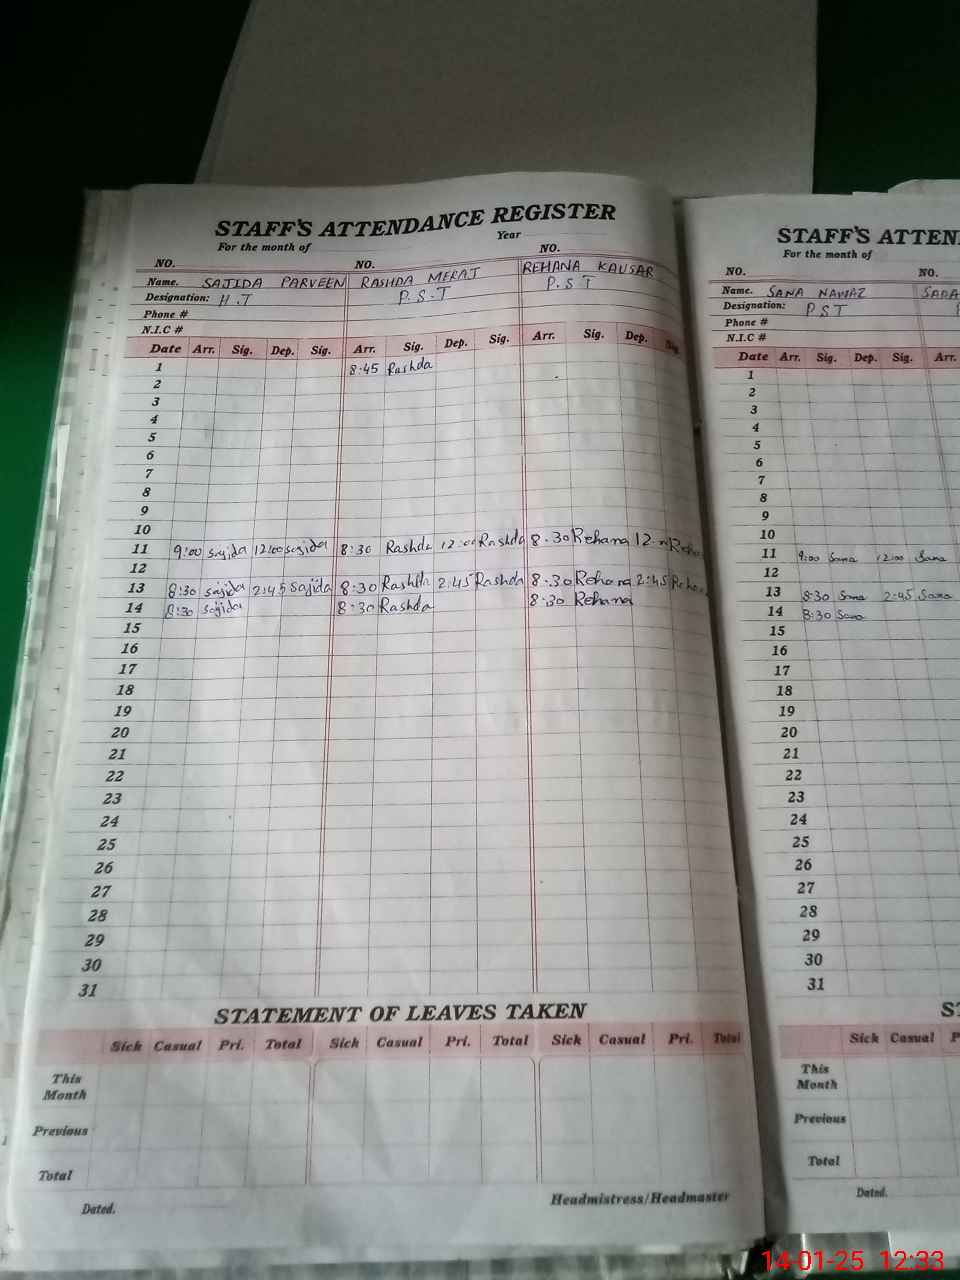 STAFF'S ATTENDANCE REGISTER
For the month of Year
NO. NO. NO.
Name. SAJIDA PARVEEN RASHDA MERAJ REHANA KAUSAR
Designation: H.T P.S.T P.S.T
Phone #
N.I.C #
Date Arr. Sig. Dep. Sig. Arr. Sig. Dep. Sig. Arr. Sig. Dep. Sig.
1 8:45 Rashda
2
3
4
5
6
7
8
9
10
11 9:00 sajida 12:00 sajida 8:30 Rashda 12:00 Rashda 8.30 Rehana
12
13 8:30 sajida 2:45 Sajida 8:30 Rashda 2:45 Rashda 8.30 Rehana 2:45 Rehana
14 8:30 sajida 8:30 Rashda 8:30 Rehana
15
16
17
18
19
20
21
22
23
24
25
26
27
28
29
30
31
STATEMENT OF LEAVES TAKEN
Sick Casual Pri. Total Sick Casual Pri. Total Sick Casual Pri. Total
This
Month
Previous
Total
Dated. Headmistress/Headmaster
STAFF'S ATTEN
For the month of
NO. NO.
Name. SANA NAWAZ
Designation: PST
Phone #
N.I.C #
Date Arr. Sig. Dep. Sig. Arr.
1
2
3
4
5
6
7
8
9
10
11 9:00 Sana 12:00 Sana
12
13 8:30 Sana 2:45 Sana
14 8:30 Sana
15
16
17
18
19
20
21
22
23
24
25
26
27
28
29
30
31
Sick Casual
This
Month
Previous
Total
Dated.
14-01-25 12:33